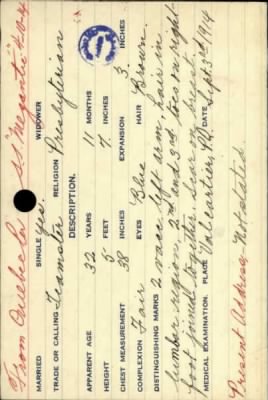 From Quebec per SS "Megantic"
MARRIED SINGLE Yes. WIDOWER
TRADE OR CALLING Teamster RELIGION Presbyterian
DESCRIPTION.
APPARENT AGE 32 YEARS 11 MONTHS
HEIGHT 5 FEET 7 INCHES
CHEST MEASUREMENT 38 INCHES EXPANSION 3 INCHES
COMPLEXION Fair EYES Blue HAIR Brown.
DISTINGUISHING MARKS 2 vacc. left arm, hair in
lumber region, 2nd and 3rd toes on right
foot joined together, scar on breast.
MEDICAL EXAMINATION. PLACE Valcartier, P.Q. DATE Sept. 3rd 1914
Present Address, Not stated